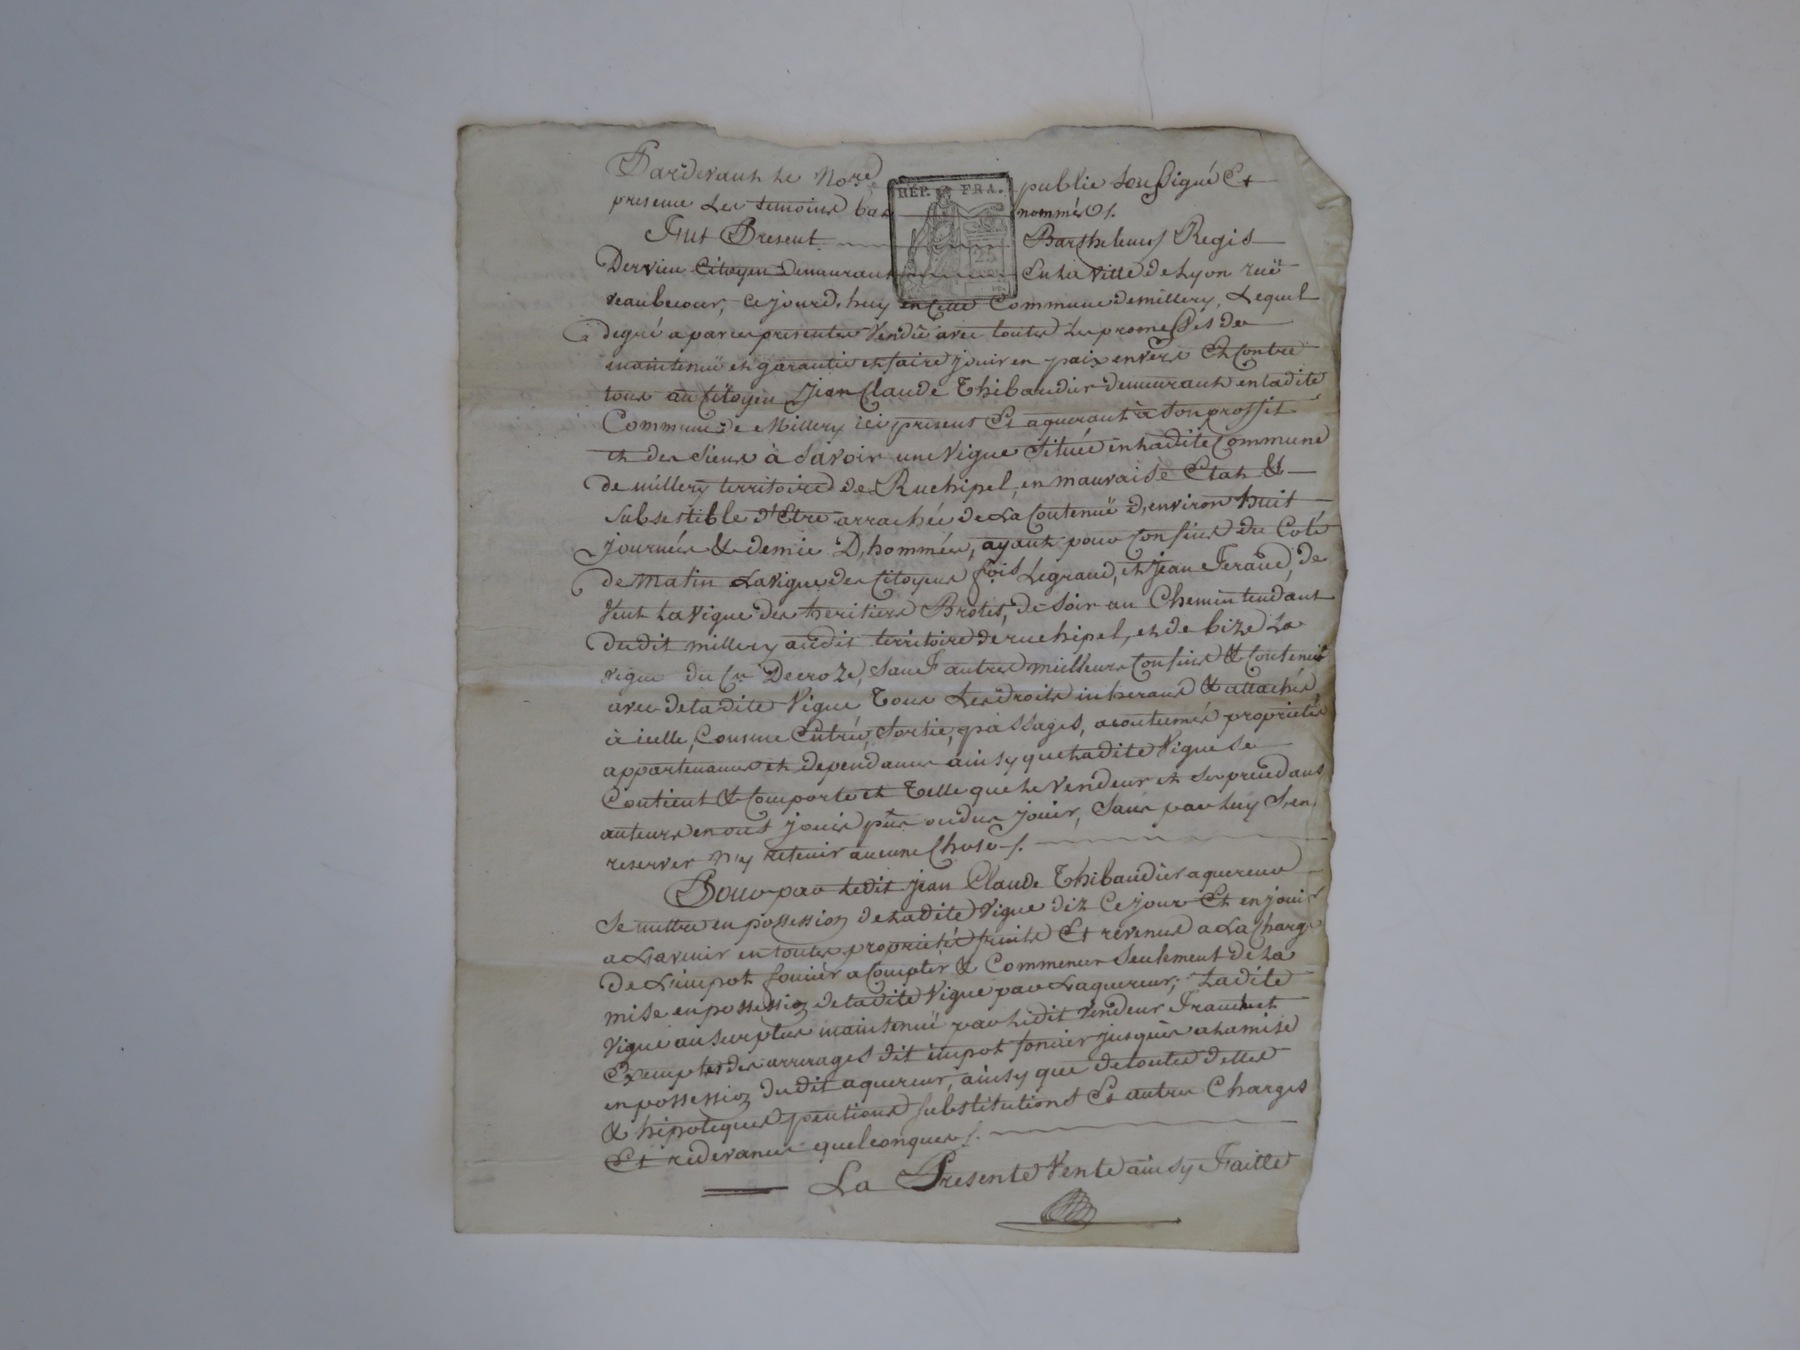 Pardevant le No.re public Soussigné Et
presence des temoins bas nommés ./.
RÉP. FRA.
25
Fut Present Barthelemy Regis
Dervieu Citoyen demeurant En la Ville de Lyon ruë
veaubecour, ce jourd,huy en Cette Commune de millery, Lequel
degré a par ces presentes Vendû avec toutes les promesses de
maintenuë et garantie et faire jouir en paix envers Et Contre
tous au Citoyen Jean Claude Thibaudier demeurant en ladite
Commune de Millery ici present Et aquerant à Son proffit
et des Siens à Savoir une Vigne Située en Ladite Commune
de millery territoire de Ruchipel, en mauvaise Etat &
Subsestible d'Etre arrachée de La Contenuë d,environ huit
journées & demie D,hommées, ayant pour Confins du Coté
de Matin La Vigne des Citoyens fois Legrand, et Jean Feraud, de
Vent la Vigne des heritiers Brotes, de Soir au Chemin tendant
dudit millery audit territoire de ruchipel, et de bize La
vigne du Cn Decroze, Sauf autres meilleurs Confins & Contenuë
avec de ladite Vigne Tous Les droits inherans & attachés
à icelle, Comme Entrée, Sortie, passages, acoutumés proprietés
appartenances et dependances ainsy que ladite Vigne Se
Contient & Comporte et Telle que le Vendeur et Ses precedans
auteurs en ont jouis pûs ou dus jouir, Sans par luy S,en
reserver n'y retenir aucune Chose ./.
Pour par Ledit jean Claude Thibaudier aquereur
Se mettre en possession de Ladite Vigne diz Ce jour Et en jouir
a L'avenir en toutes proprietés fruits Et revenus a La Charge
De L'impot foncier a Compter & Commencer Seulement de La
mise en possession de ladite Vigne par L'aquereur, Ladite
Vigne au Surplus maintenuë par Ledit Vendeur Franche et
Exempte des arrerages dit impot foncier jusques a la mise
en possession dudit aquereur, ainsy que de toutes dettes
& hipoteques pentions Substitutions Et autres Charges
Et redevances quelconques ./.
La Presente Vente ainsy Faitte